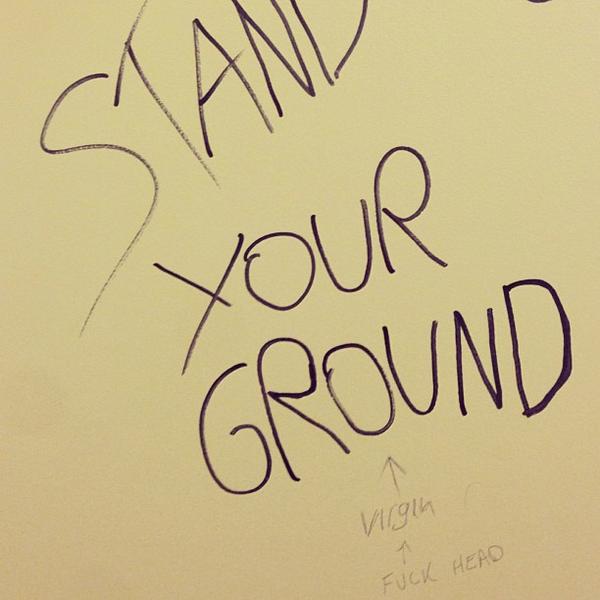 STAND
YOUR
GROUND
Virgin
FUCK HEAD